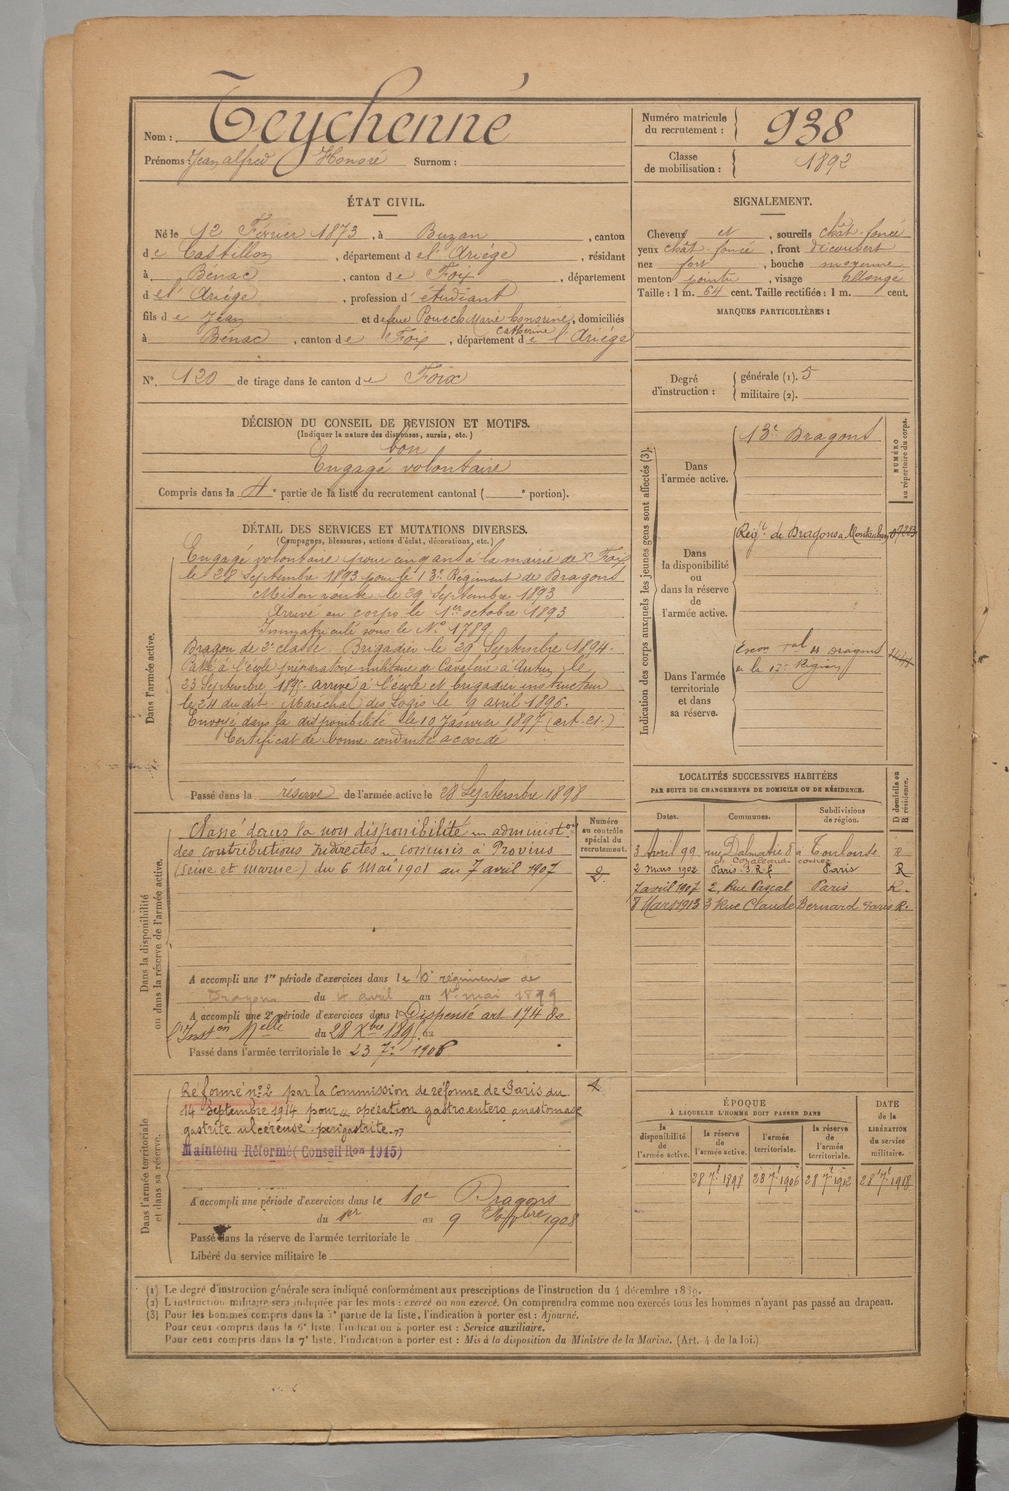 Nom : Teychenné
Prénoms : Jean alfred Honoré Surnom :
Numéro matricule du recrutement : 938
Classe de mobilisation : 1892
ÉTAT CIVIL.
Né le 12 Février 1873, à Buzan, canton
de Castillon, département de l'Ariège, résidant
à Bénac, canton de Foix, département
de l'Ariège, profession d'étudiant
fils de Jean et de feue Pouech Marie Honorine, domiciliés
Catherine
à Bénac, canton de Foix, département de l'Ariège
N° 120 de tirage dans le canton de Foix
SIGNALEMENT.
Cheveux et, sourcils chât-foncé
yeux chât-foncé, front découvert
nez fort, bouche moyenne
menton pointu, visage allongé
Taille : 1 m. 64 cent. Taille rectifiée : 1 m. cent.
MARQUES PARTICULIÈRES :
Degré d'instruction : générale (1). 5
militaire (2).
DÉCISION DU CONSEIL DE REVISION ET MOTIFS.
(Indiquer la nature des dispenses, sursis, etc.)
bon
Engagé volontaire
Compris dans la 4e partie de la liste du recrutement cantonal ( e portion).
DÉTAIL DES SERVICES ET MUTATIONS DIVERSES.
(Campagnes, blessures, actions d'éclat, décorations, etc.)
Dans l'armée active.
Engagé volontaire pour cinq ans à la mairie de Foix
le 28 Septembre 1893 pour le 13e Régiment de Dragons
Mis en route le 29 Septembre 1893
Arrivé au corps le 1er octobre 1893
Immatriculé sous le N° 1789
Dragon de 2e classe Brigadier le 29 Septembre 1894.
Passé à l'école préparatoire militaire de Cavalerie à Autun le
23 Septembre arrivé à l'école et brigadier instructeur
le 24 du dit. Maréchal des Logis le 9 avril 1896.
Envoyé dans la disponibilité le 10 Janvier 1897 (art. 21.)
Certificat de bonne conduite accordé
Passé dans la réserve de l'armée active le 28 Septembre 1898
Indication des corps auxquels les jeunes gens sont affectés (3).
NUMÉRO au répertoire du corps.
Dans l'armée active.
13e Dragons
Dans la disponibilité ou dans la réserve de l'armée active.
Regt de Dragons à Montauban
Dans l'armée territoriale et dans sa réserve.
Escon Tal de Dragons
de la 17e Région
LOCALITÉS SUCCESSIVES HABITÉES
PAR SUITE DE CHANGEMENTS DE DOMICILE OU DE RÉSIDENCE.
Dates. Communes. Subdivisions de région. D domicile ou R résidence.
3 Avril 99 rue Dalmatie 8 à Toulouse R
2 mars 1902 Paris Paris R
7 avril 1907 2, Rue Pascal Paris R.
8 Mars 1913 3 Rue Claude Bernard Paris R.
Dans la disponibilité ou dans la réserve de l'armée active.
Numéro au contrôle spécial du recrutement.
Classé dans la non disponibilité administon
des contributions Indirectes commis à Provins
(Seine et Marne) du 6 Mai 1901 au 7 avril 1907
A accompli une 1re période d'exercices dans le régiment de
Dragons du 4 avril au 1er mai 1899
A accompli une 2e période d'exercices dans l Dispensé art 174 de
l'Inston Melle du 28 Xbre au
Passé dans l'armée territoriale le 23 7e 1906
Dans l'armée territoriale et dans sa réserve.
Réformé n° 2 par la Commission de réforme de Paris du
14 Septembre 1914 pour opération gastro entéro anastomose
gastrite ulcéreuse périgastrite.
Maintenu Réformé (Conseil Ron 1915)
A accompli une période d'exercices dans le 10e Dragons
du 1er au 9 Octobre 1908
Passé dans la réserve de l'armée territoriale le
Libéré du service militaire le
ÉPOQUE
À LAQUELLE L'HOMME DOIT PASSER DANS
la disponibilité de l'armée active. la réserve de l'armée active. l'armée territoriale. la réserve de l'armée territoriale.
DATE de la LIBÉRATION du service militaire.
28 7e 1898 28 7e 1906 28 7e 1912 28 7e 1918
(1) Le degré d'instruction générale sera indiqué conformément aux prescriptions de l'instruction du 4 décembre 1889.
(2) L'instruction militaire sera indiquée par les mots : exercé ou non exercé. On comprendra comme non exercés tous les hommes n'ayant pas passé au drapeau.
(3) Pour les hommes compris dans la 5e partie de la liste, l'indication à porter est : Ajourné.
Pour ceux compris dans la 6e liste, l'indication à porter est : Service auxiliaire.
Pour ceux compris dans la 7e liste, l'indication à porter est : Mis à la disposition du Ministre de la Marine. (Art. 4 de la loi.)